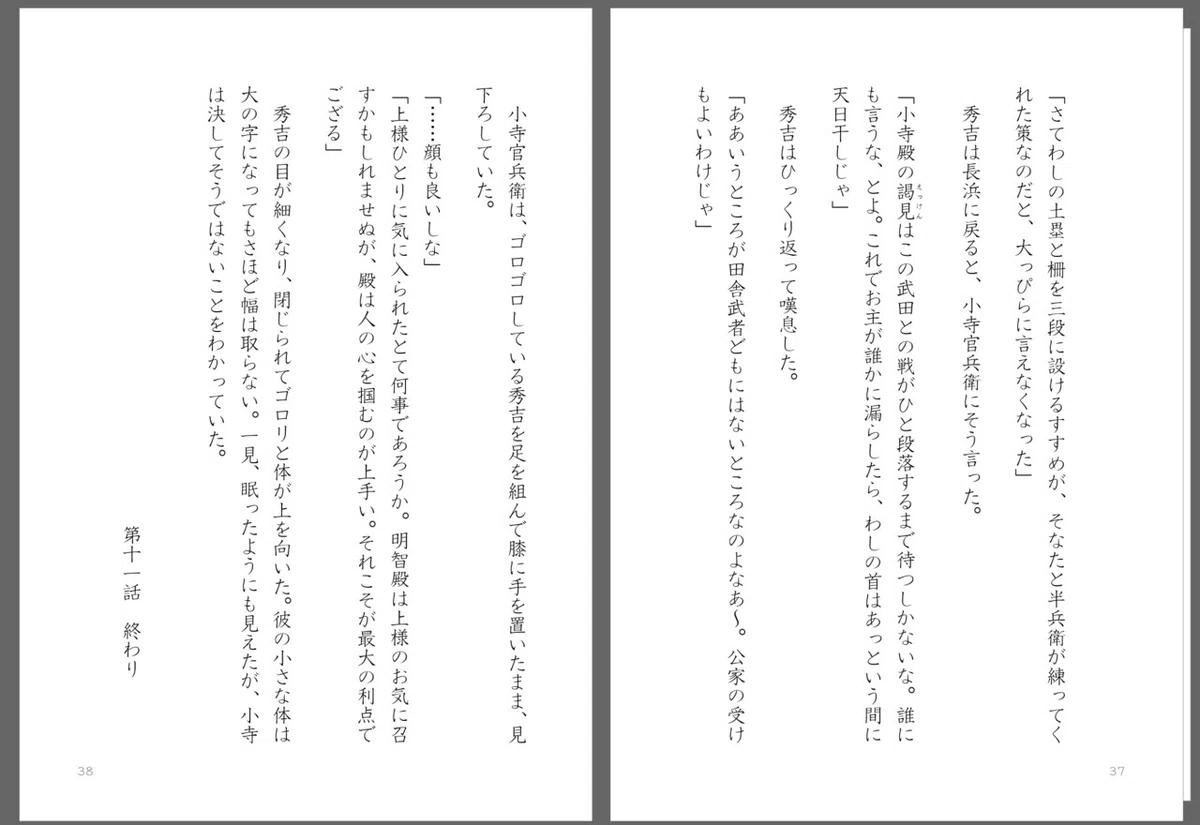 「さてわしの土塁と柵を三段に設けるすすめが、そなたと半兵衛が練ってく
れた策なのだと、大っぴらに言えなくなった」
秀吉は長浜に戻ると、小寺官兵衛にそう言った。
「小寺殿の謁見はこの武田との戦がひと段落するまで待つしかないな。誰に
えっけん
も言うな、とよ。これでお主が誰かに漏らしたら、わしの首はあっという間に
天日干しじゃ」
秀吉はひっくり返って嘆息した。
「ああいうところが田舎武者どもにはないところなのよなあ〜。公家の受け
もよいわけじゃ」
37
小寺官兵衛は、ゴロゴロしている秀吉を足を組んで膝に手を置いたまま、見
下ろしていた。
「……顔も良いしな」
「上様ひとりに気に入られたとて何事であろうか。明智殿は上様のお気に召
すかもしれませぬが、殿は人の心を掴むのが上手い。それこそが最大の利点で
ござる」
秀吉の目が細くなり、閉じられてゴロリと体が上を向いた。彼の小さな体は
大の字になってもさほど幅は取らない。一見、眠ったようにも見えたが、小寺
は決してそうではないことをわかっていた。
第十一話　終わり
38